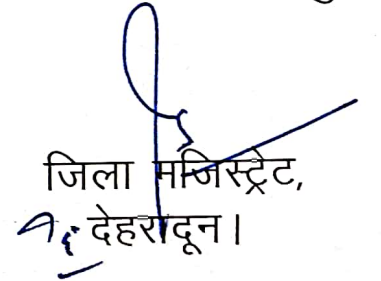 जिला मजिस्ट्रेट,
देहरादून।